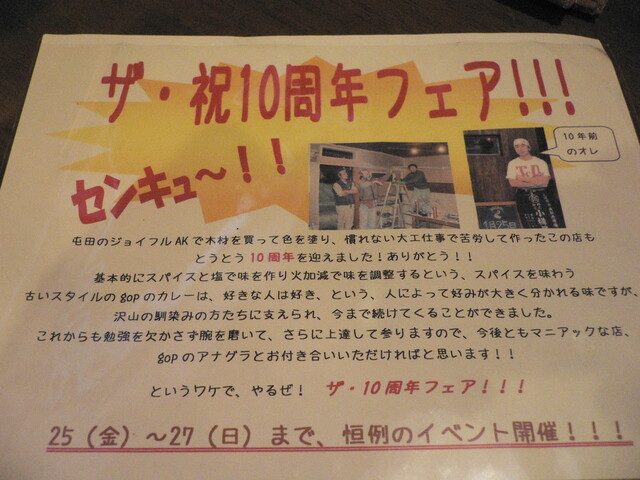 ザ・祝10周年フェア!!!
センキュ～!!
10年前
のオレ
屯田のジョイフルAKで木材を買って色を塗り、慣れない大工仕事で苦労して作ったこの店も
とうとう10周年を迎えました！ありがとう！！
基本的にスパイスと塩で味を作り火加減で味を調整するという、スパイスを味わう
古いスタイルのgopのカレーは、好きな人は好き、という、人によって好みが大きく分かれる味ですが、
沢山の馴染みの方たちに支えられ、今まで続けてくることができました。
これからも勉強を欠かさず腕を磨いて、さらに上達して参りますので、今後ともマニアックな店、
gopのアナグラとお付き合いいただければと思います！！
というワケで、やるぜ！　ザ・10周年フェア！！！
25（金）～27（日）まで、恒例のイベント開催！！！